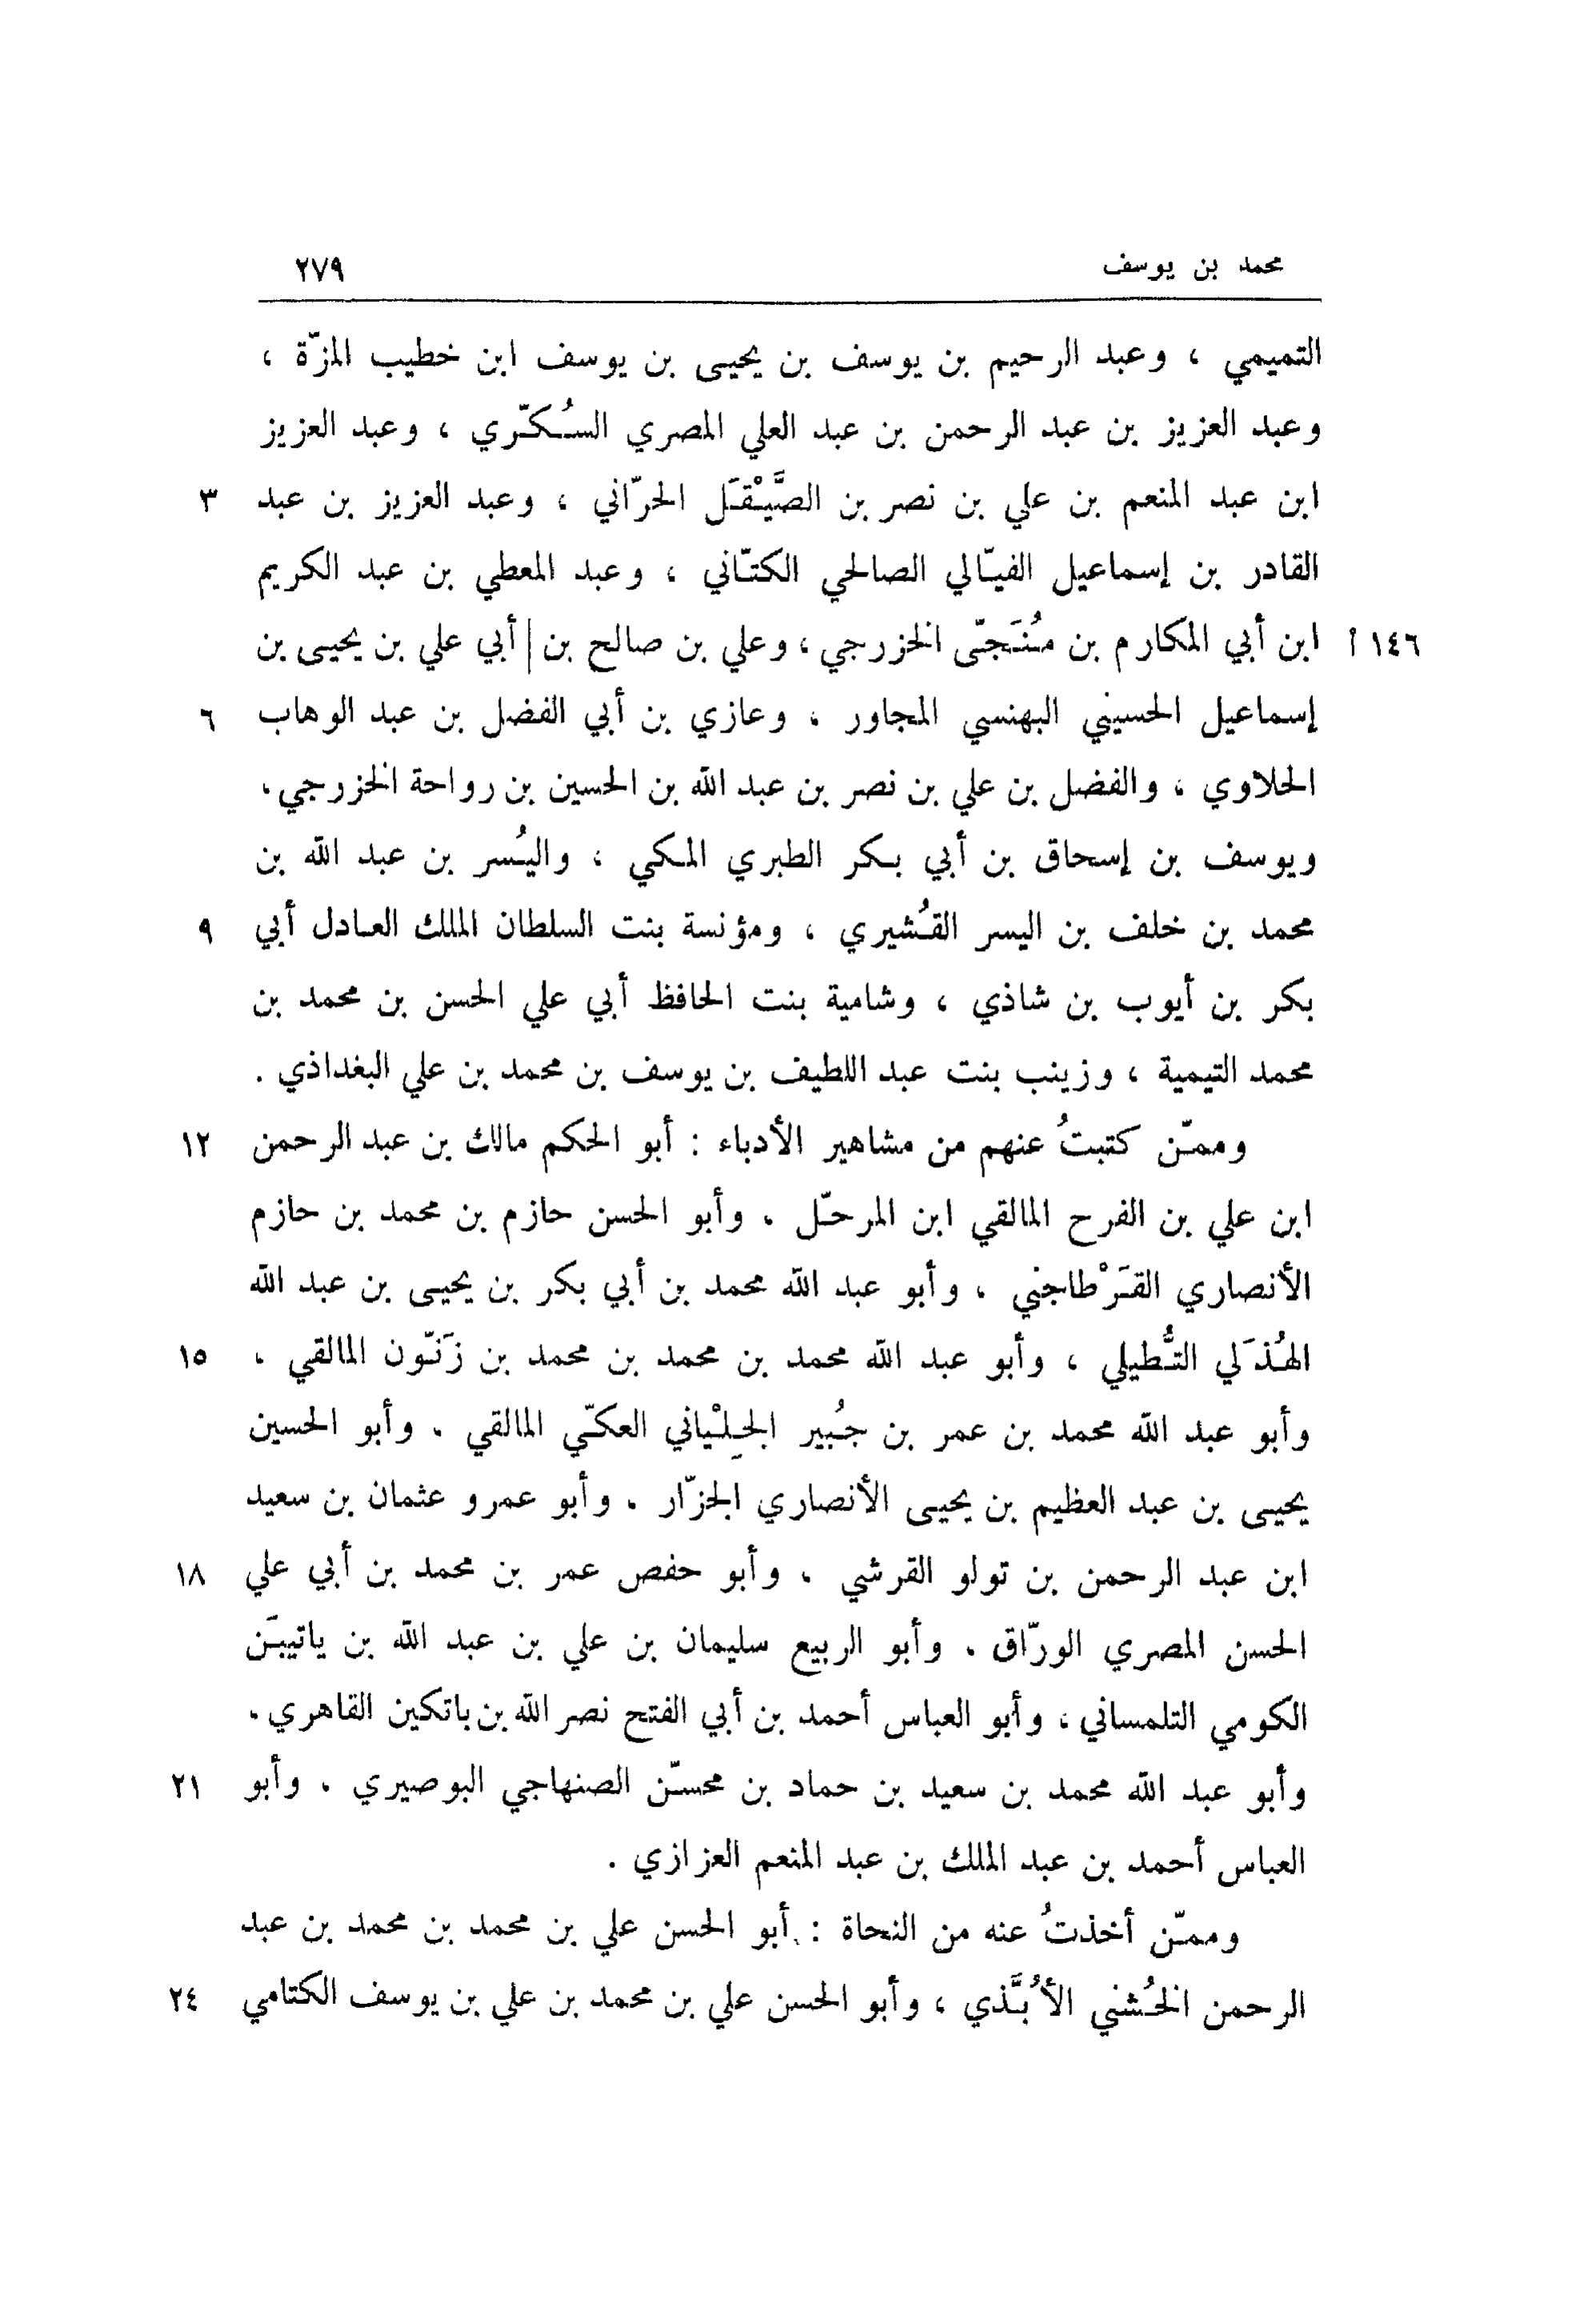 محمد بن يوسف ٢٧٩
التميمي ، وعبد الرحيم بن يوسف بن يحيى بن يوسف ابن خطيب المزّة ،
وعبد العزيز بن عبد الرحمن بن عبد العلي المصري السُكّري ، وعبد العزيز
ابن عبد المنعم بن علي بن نصر بن الصَّيْقَل الحرّاني ، وعبد العزيز بن عبد ٣
القادر بن إسماعيل الفيّالي الصالحي الكتّاني ، وعبد المعطي بن عبد الكريم
١٤٦ أ ابن أبي المكارم بن مُنَجّى الخزرجي ، وعلي بن صالح بن | أبي علي بن يحيى بن
إسماعيل الحسيني البهنسي المجاور ، وعازي بن أبي الفضل بن عبد الوهاب ٦
الحلاوي ، والفضل بن علي بن نصر بن عبد الله بن الحسين بن رواحة الخزرجي ،
ويوسف بن إسحاق بن أبي بكر الطبري المكي ، واليُسر بن عبد الله بن
محمد بن خلف بن اليسر القُشيري ، ومؤنسة بنت السلطان الملك العادل أبي ٩
بكر بن أيوب بن شاذي ، وشامية بنت الحافظ أبي علي الحسن بن محمد بن
محمد التيمية ، وزينب بنت عبد اللطيف بن يوسف بن محمد بن علي البغداذي .
وممّن كتبتُ عنهم من مشاهير الأدباء : أبو الحكم مالك بن عبد الرحمن ١٢
ابن علي بن الفرح المالقي ابن المرحّل ، وأبو الحسن حازم بن محمد بن حازم
الأنصاري القَرْطاجني ، وأبو عبد الله محمد بن أبي بكر بن يحيى بن عبد الله
الهُذَلي التُّطيلي ، وأبو عبد الله محمد بن محمد بن محمد بن زَنّون المالقي ، ١٥
وأبو عبد الله محمد بن عمر بن جُبير الجِلْياني العكّي المالقي ، وأبو الحسين
يحيى بن عبد العظيم بن يحيى الأنصاري الجزّار ، وأبو عمرو عثمان بن سعيد
ابن عبد الرحمن بن تولو القرشي ، وأبو حفص عمر بن محمد بن أبي علي ١٨
الحسن المصري الورّاق ، وأبو الربيع سليمان بن علي بن عبد الله بن ياتيبَن
الكومي التلمساني ، وأبو العباس أحمد بن أبي الفتح نصر الله بن باتكين القاهري ،
وأبو عبد الله محمد بن سعيد بن حماد بن محسّن الصنهاجي البوصيري ، وأبو ٢١
العباس أحمد بن عبد الملك بن عبد المنعم العزازي .
وممّن أخذتُ عنه من النحاة : أبو الحسن علي بن محمد بن محمد بن عبد
الرحمن الخُشني الأُبَّذي ، وأبو الحسن علي بن محمد بن علي بن يوسف الكتامي ٢٤